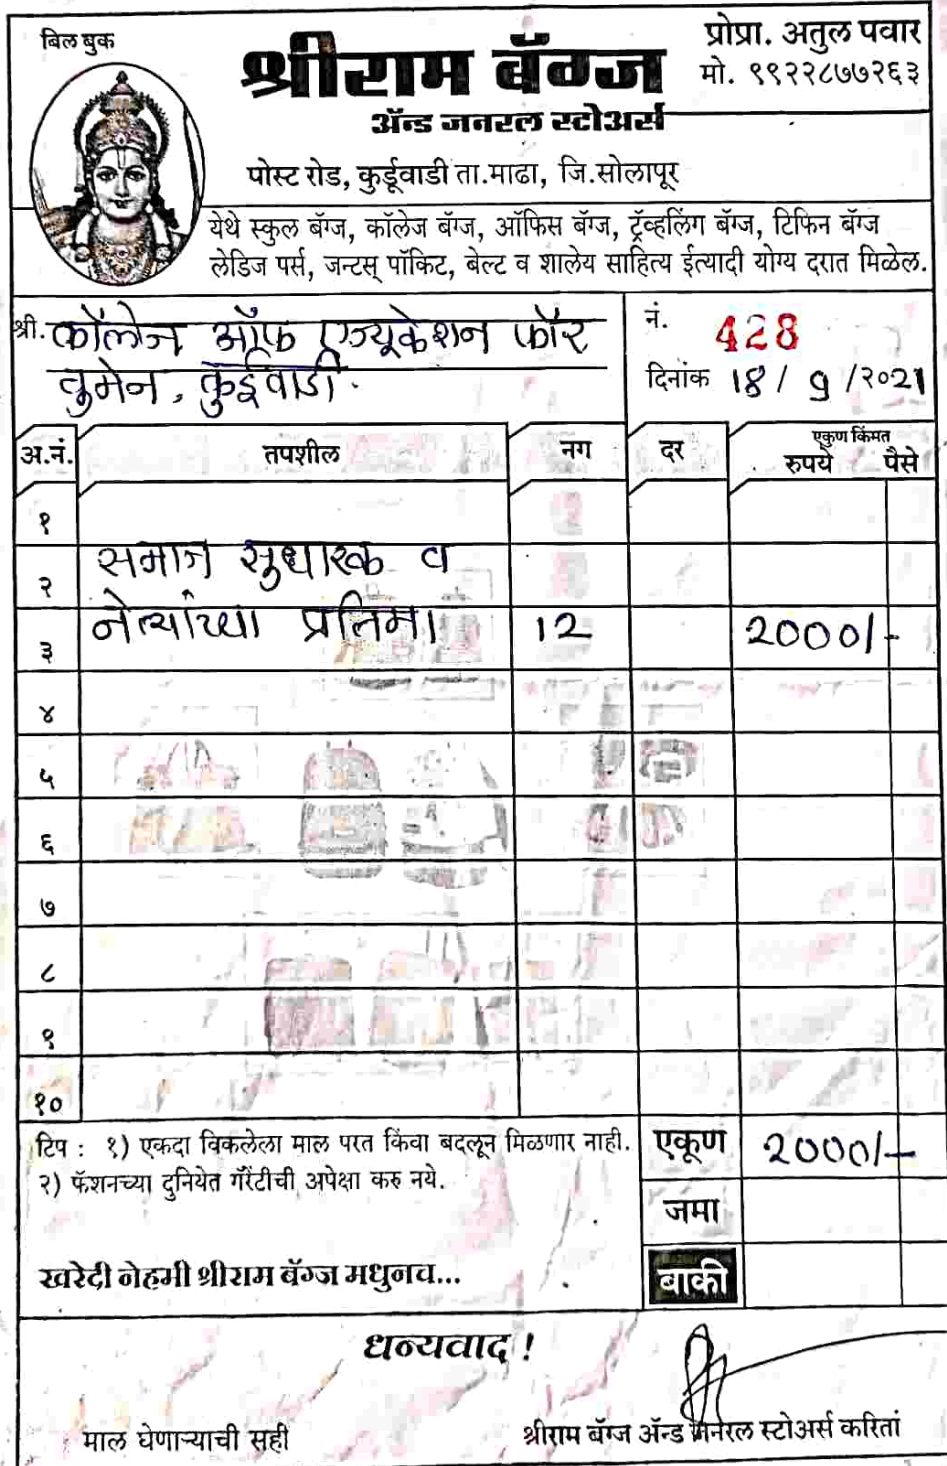 बिल बुक
प्रोप्रा. अतुल पवार
मो. ९९२२८७७२६३
श्रीराम बॅग्ज
ॲन्ड जनरल स्टोअर्स
पोस्ट रोड, कुर्डूवाडी ता.माढा, जि.सोलापूर
येथे स्कुल बॅग्ज, कॉलेज बॅग्ज, ऑफिस बॅग्ज, ट्रॅव्हलिंग बॅग्ज, टिफिन बॅग्ज
लेडिज पर्स, जन्टस् पॉकिट, बेल्ट व शालेय साहित्य ईत्यादी योग्य दरात मिळेल.
श्री. कॉलेज ऑफ एज्यूकेशन फॉर
वुमेन, कुर्डूवाडी.
नं. 428
दिनांक 18 / 9 /२०21
अ.नं. तपशील नग दर एकुण किंमत रुपये पैसे
१
२ समाज सुधारक व
३ नेत्यांच्या प्रतिमा 12 2000/-
४
५
६
७
८
९
१०
टिप : १) एकदा विकलेला माल परत किंवा बदलून मिळणार नाही.
२) फॅशनच्या दुनियेत गॅरंटीची अपेक्षा करु नये.
एकूण 2000/-
जमा
खरेदी नेहमी श्रीराम बॅग्ज मधुनच...
बाकी
धन्यवाद !
माल घेणाऱ्याची सही
श्रीराम बॅग्ज ॲन्ड जनरल स्टोअर्स करितां